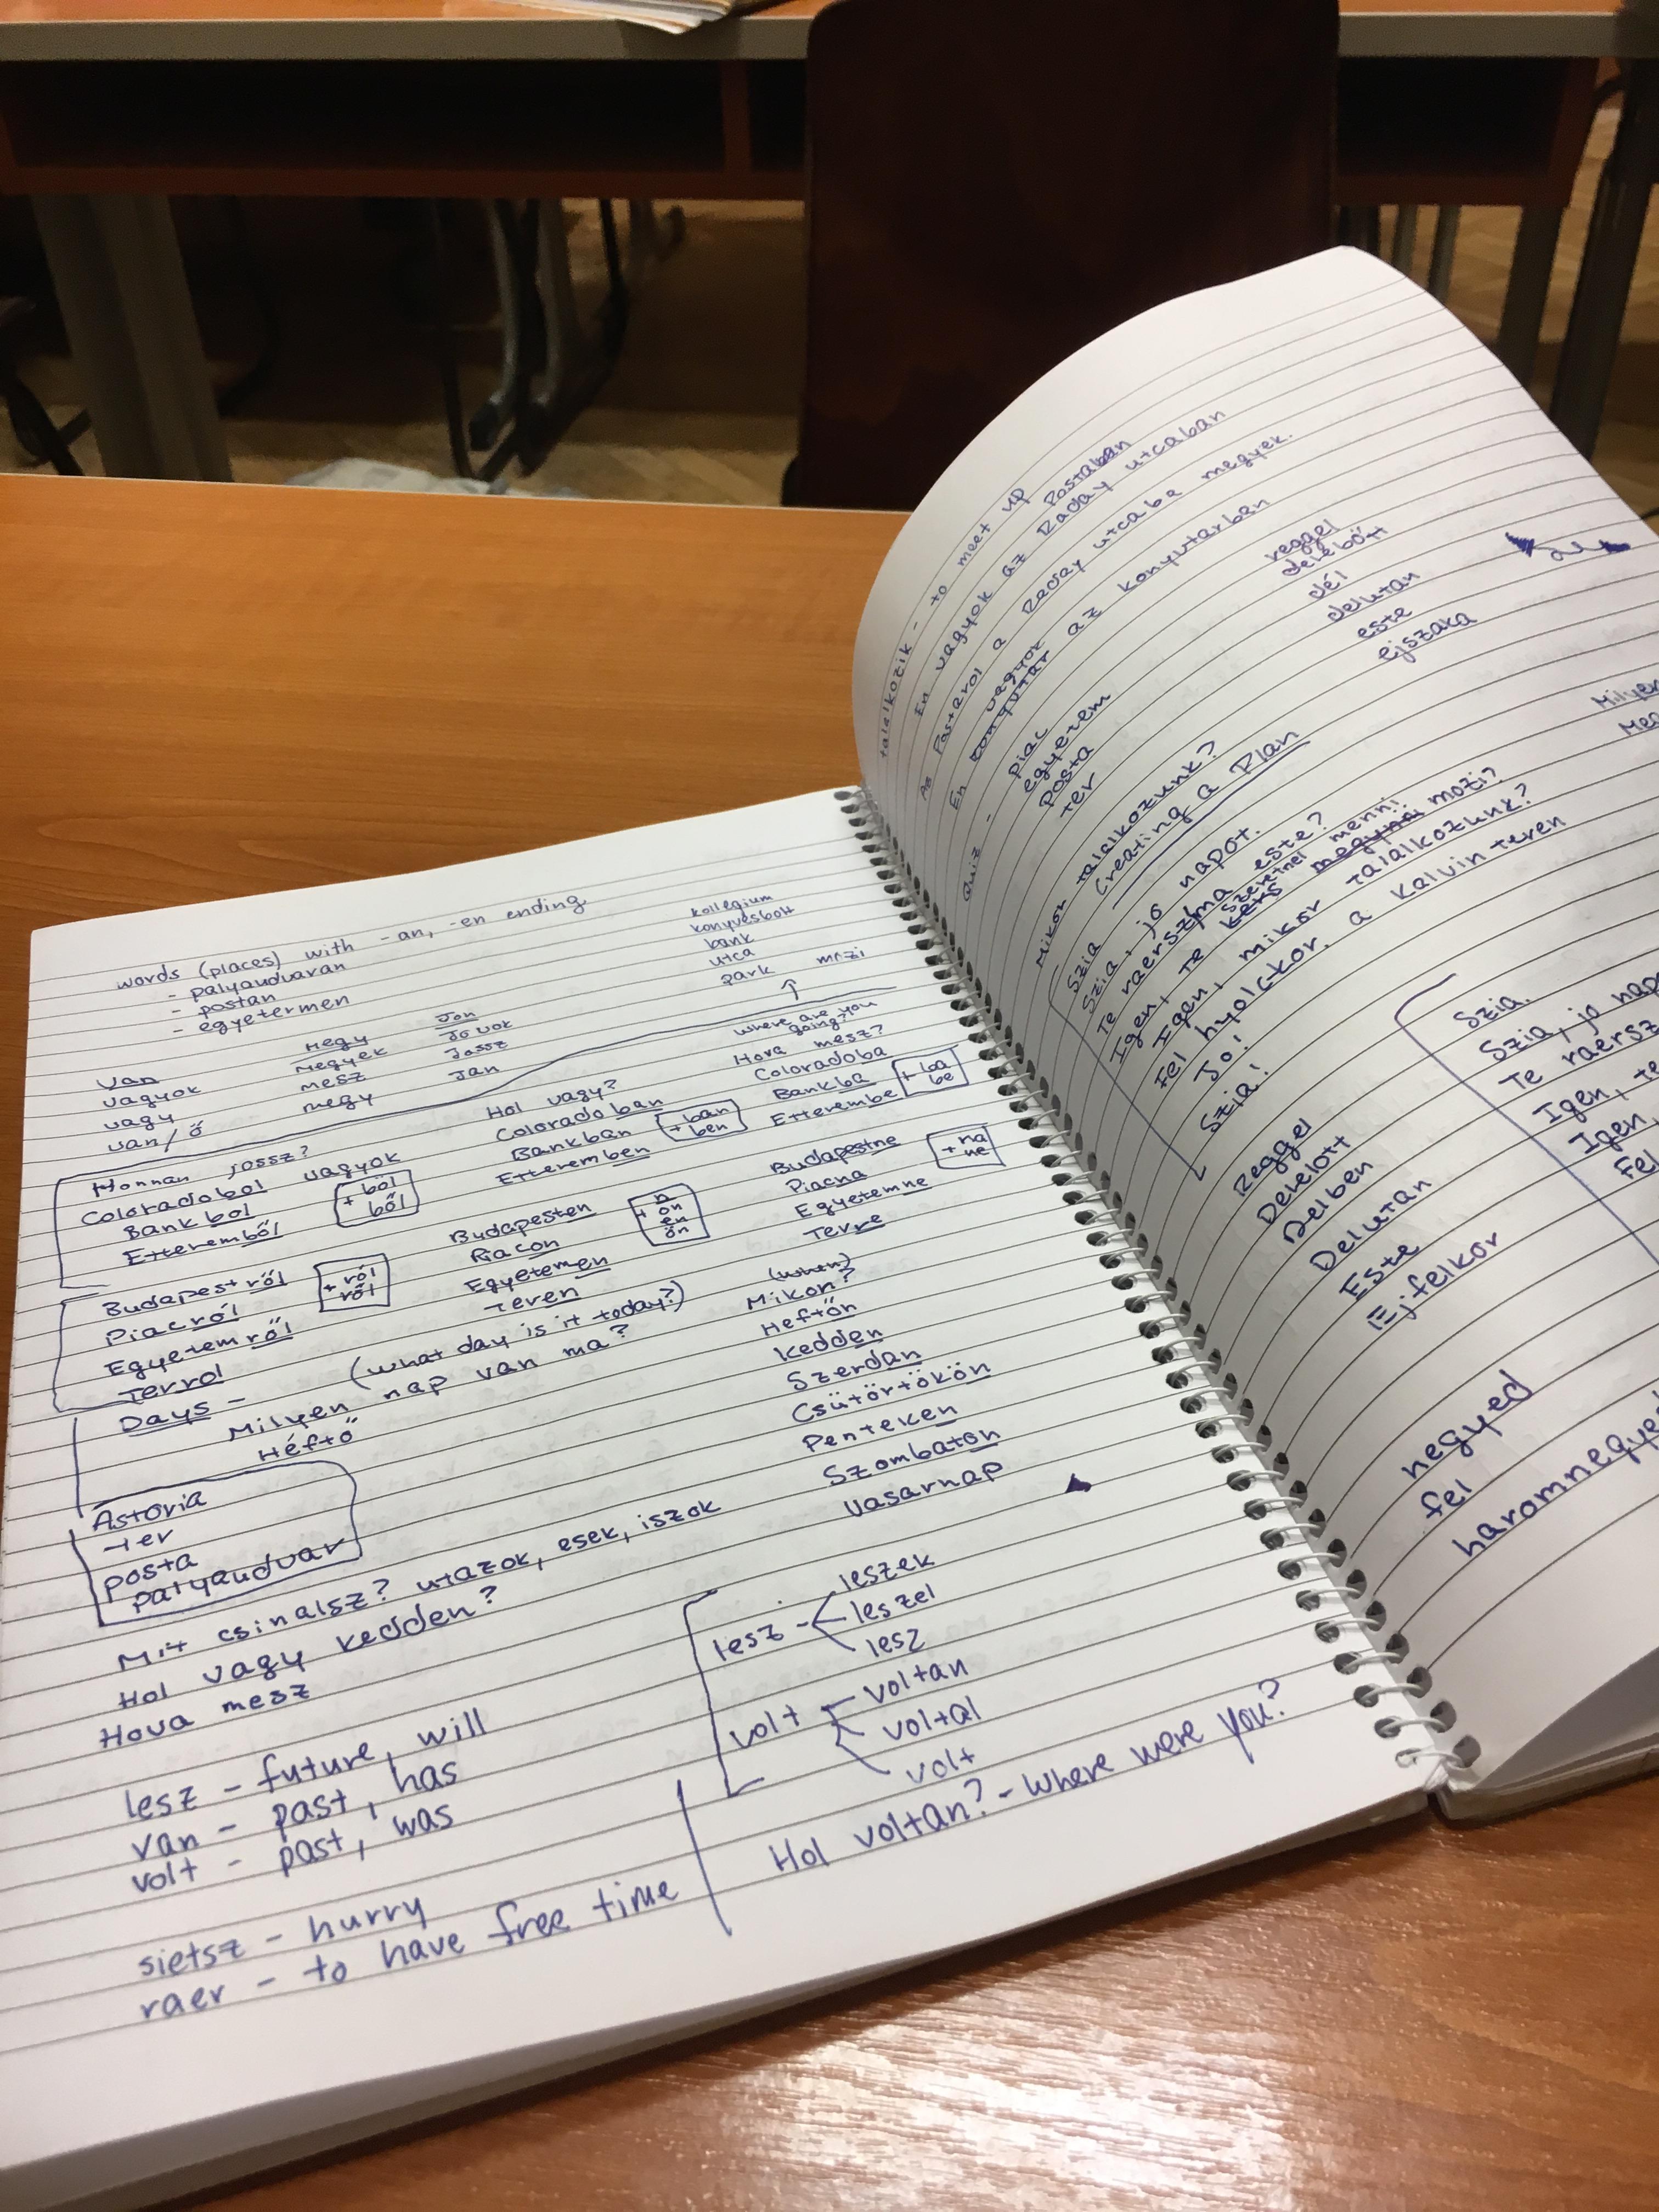 words (places) with -an, -en ending
- palyaudvaran
- postan
- egyetermen
kollegium
konyvesbolt
bank
utca
park mozi
Van
vagyok
vagy
van/ő
Megy
megyek
mesz
megy
Jon
Jovok
Jossz
Jan
where are you going?
Honnan jossz?
Coloradobol vagyok
Bankbol
Etteremből
+ból
ből
Hol vagy?
Coloradoban
Bankban
Etteremben
+ban
ben
Hova mesz?
Coloradoba
Bankba
Etterembe
+ba
be
Budapestről
Piacról
Egyetemről
Terrol
+ról
ről
Budapesten
Piacon
Egyetemen
Teren
+n
on
en
ön
Budapestne
Piacna
Egyetemne
Terre
+na
ne
Days - (what day is it today?)
Milyen nap van ma?
Héftő
(when)
Mikon?
Heftőn
Kedden
Szerdan
Csütörtökön
Penteken
Szombaton
Vasarnap
Astoria
ter
posta
palyaudvar
Mit csinalsz? utazok, esek, iszok
Hol vagy kedden?
Hova mesz
lesz - future, will
van - past, has
volt - past, was
sietsz - hurry
raer - to have free time
lesz - leszek
leszel
lesz
volt voltan
voltal
volt
Hol voltan? - where were you?
talalkozik - to meet up
Postaban
En vagyok az Raday utcaban
Az Pastarol a Raday utcaba megyek.
En vagyok az konyvtarben
konyvtar
Quiz - piac
egyetem
posta
ter
reggel
delebőtt
dél
delutan
este
ejszaka
Mikor talalkozunk?
Creating a Plan
Szia
Szia, jo napot.
Te raersz/ma este?
szeretnel menni
Igen, Te kers megynai mozi?
Igen, mikor talalkozunk?
Fel nyolckor. a Kalvin teren
Jo!
Szia!
Reggel
Delelott
Delben
Delutan
Este
Ejfelkor
Szia.
Szia, jo nap
Te raersz
Igen, te
Igen,
Fel
negyed
fel
haromnegyed